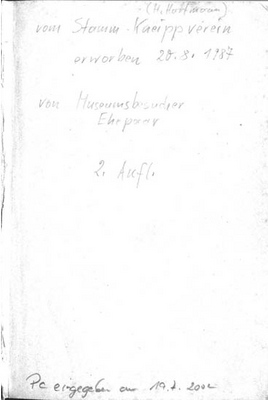 (H. Hoffmann)
vom Stamm-Kneippverein
erworben 20.8.1987
von Museumsbesucher
Ehepaar
2. Aufl.
Pc eingegeben am 19.2.2002